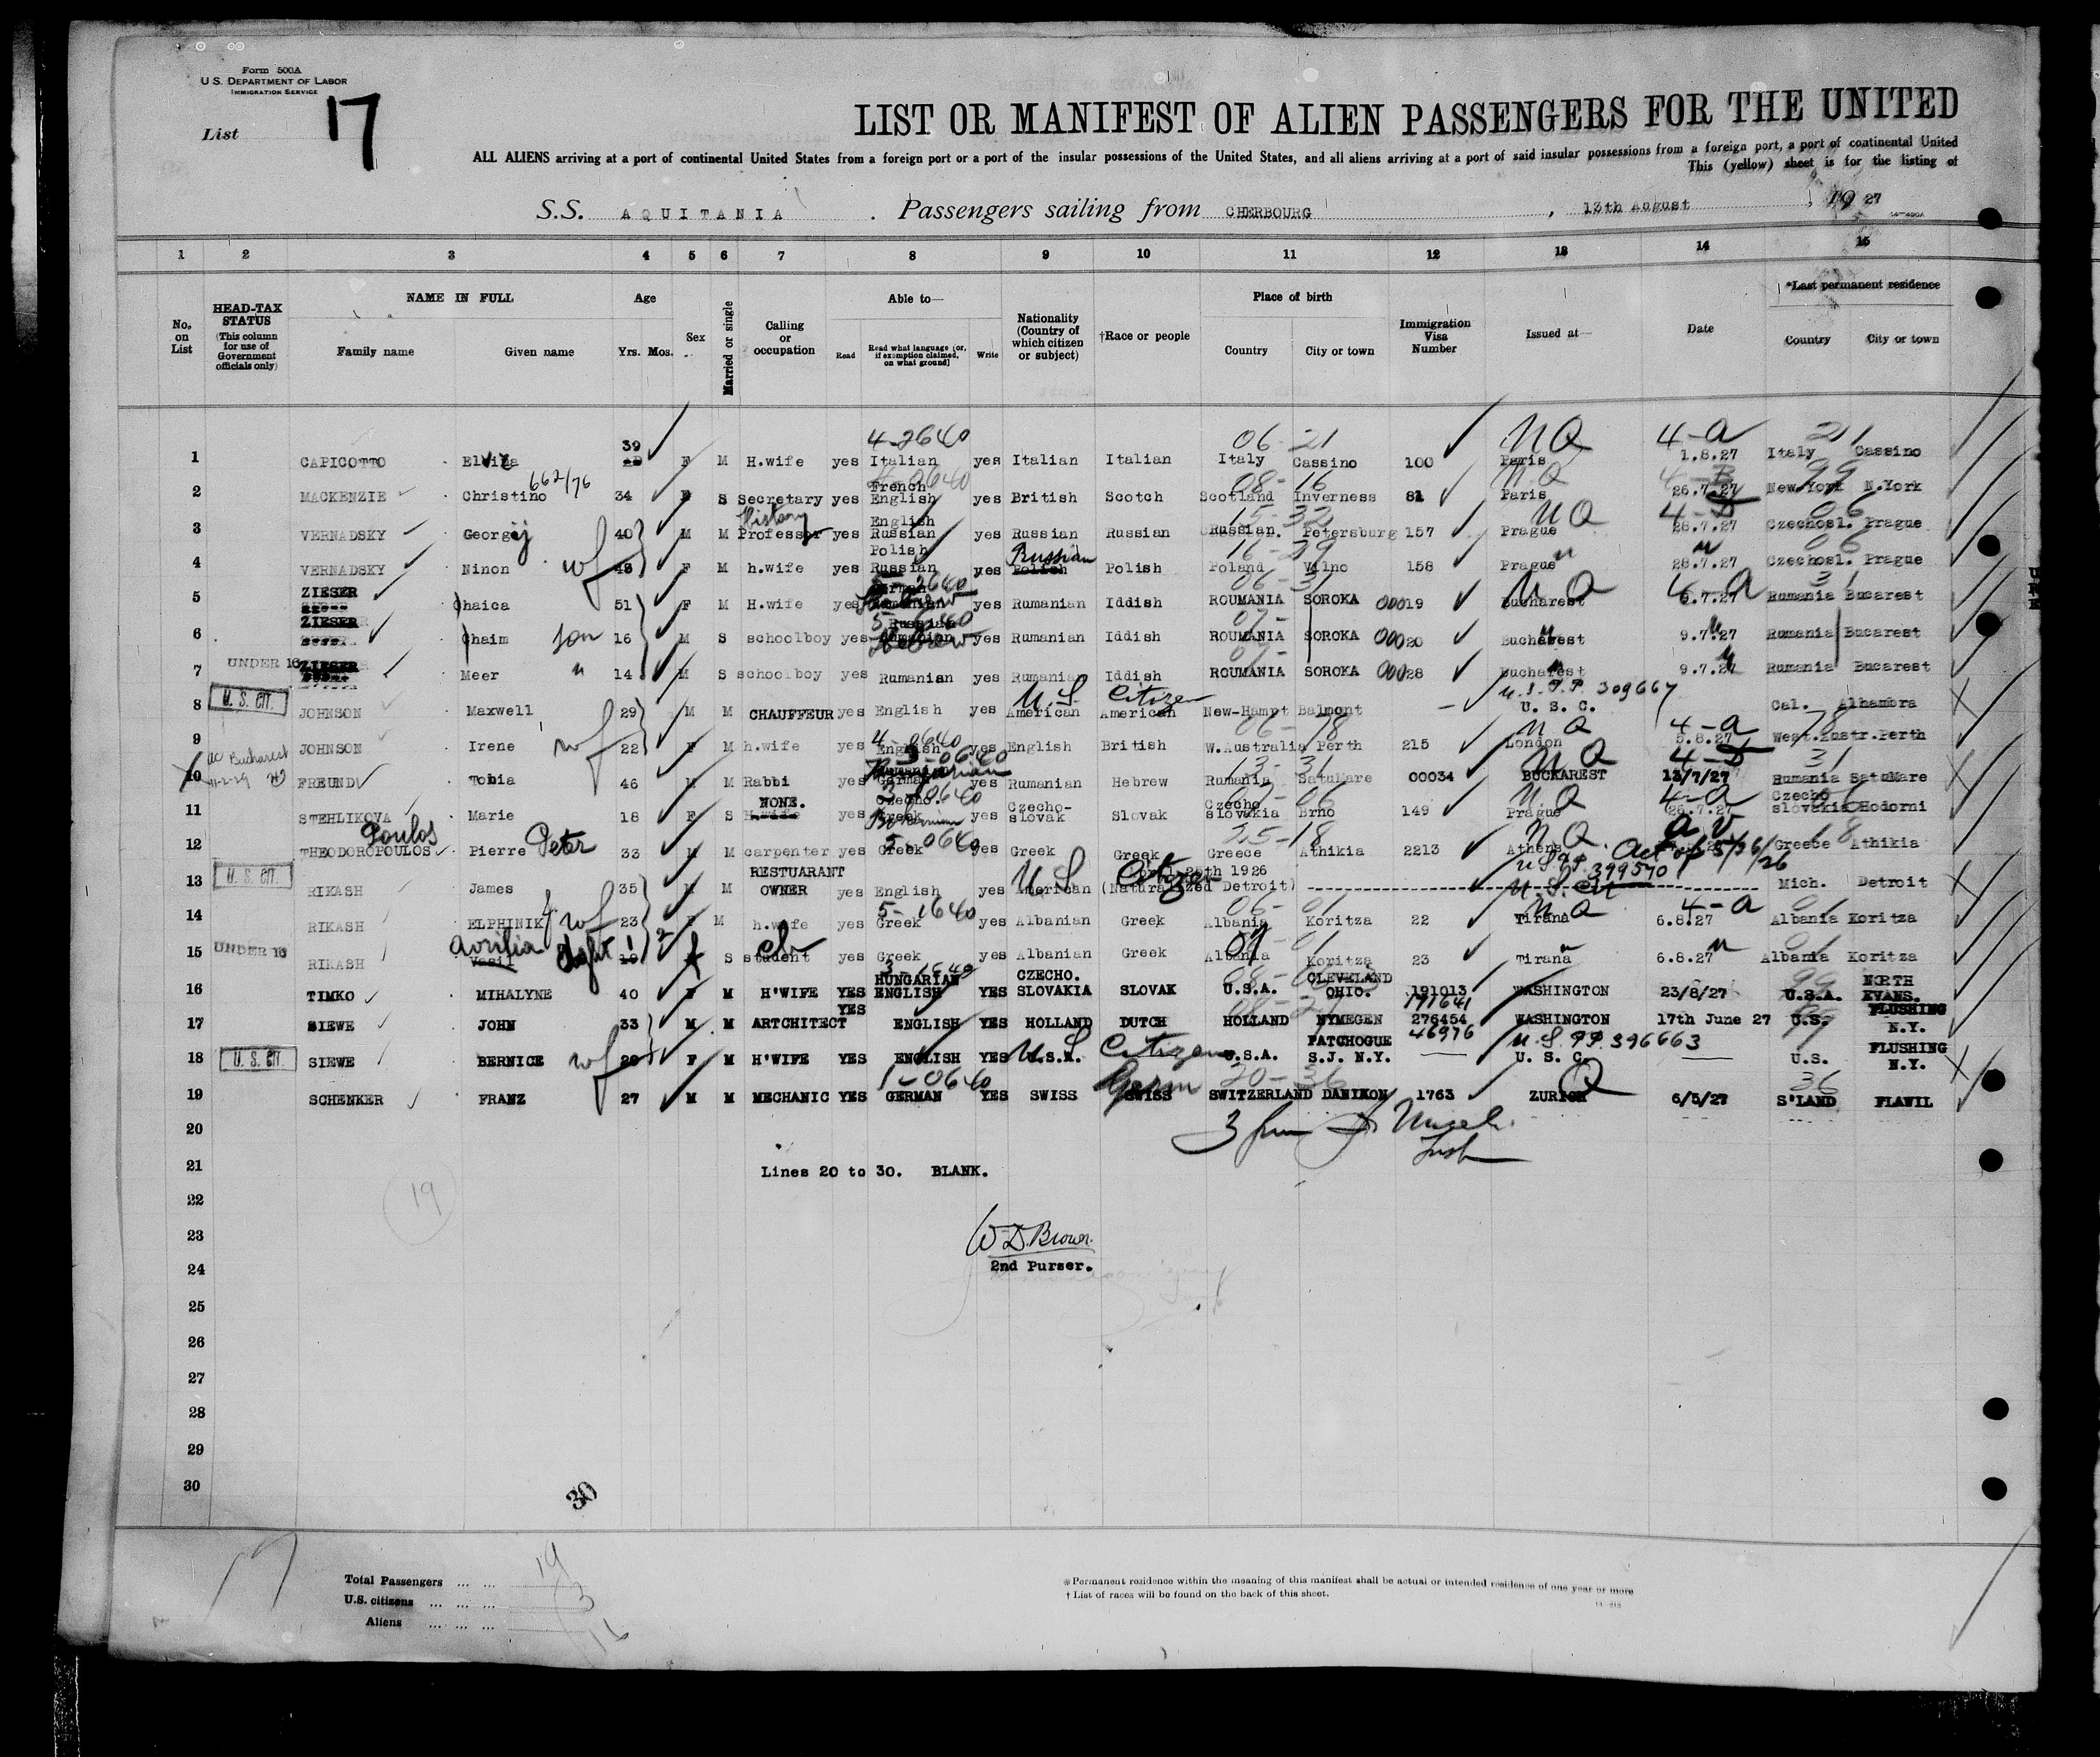 Form 500A
U.S. DEPARTMENT OF LABOR
IMMIGRATION SERVICE
List 17
LIST OR MANIFEST OF ALIEN PASSENGERS FOR THE UNITED
ALL ALIENS arriving at a port of continental United States from a foreign port or a port of the insular possessions of the United States, and all aliens arriving at a port of said insular possessions from a foreign port, a port of continental United
This (yellow) sheet is for the listing of
S.S. AQUITANIA . Passengers sailing from CHERBOURG , 13th August , 19 27
1 2 3 4 5 6 7 8 9 10 11 12 13 14 15
No. on List
HEAD-TAX STATUS (This column for use of Government officials only)
NAME IN FULL Family name Given name
Age Yrs. Mos.
Sex
Married or single
Calling or occupation
Able to— Read Read what language (or, if exemption claimed, on what ground) Write
Nationality (Country of which citizen or subject)
†Race or people
Place of birth Country City or town
Immigration Visa Number
Issued at—
Date
*Last permanent residence Country City or town
4-2640 06-21 NQ 4-a 21
1 CAPICOTTO Elvira 39 F M H.wife yes Italian yes Italian Italian Italy Cassino 100 Paris 1.8.27 Italy Cassino
662/76 French 08-16 NQ 99
2 MACKENZIE Christino 34 F S Secretary yes English yes British Scotch Scotland Inverness 81 Paris 26.7.27 New York N.York
History English 15-32 NQ 06
3 VERNADSKY Georgij 40 M M Professor yes Russian yes Russian Russian Russian. Petersburg 157 Prague 28.7.27 Czechosl. Prague
Polish Russian 16-29 06
4 VERNADSKY Ninon wf F M h.wife yes Russian yes Polish Polish Poland Vilno 158 Prague 28.7.27 Czechosl. Prague
ZIESER 06-31 NQ 4-a 31
5 Chaica 51 F M H.wife yes yes Rumanian Iddish ROUMANIA SOROKA 00019 Bucharest 6.7.27 Rumania Bucarest
ZIESER Russian
6 Chaim son 16 M S schoolboy yes Hebrew yes Rumanian Iddish ROUMANIA SOROKA 00020 Bucharest 9.7.27 Rumania Bucarest
7 UNDER 16 ZIESER Meer " 14 M S schoolboy yes Rumanian yes Rumania Iddish ROUMANIA SOROKA 00028 Bucharest 9.7.27 Rumania Bucarest
U.S. CIT. U.S. Citizen U.S.P.P. 309667
8 JOHNSON Maxwell 29 M M CHAUFFEUR yes English yes American American New-Hampt Balmont U. S. C. Cal. Alhambra
4-0640 06-78 NQ 4-a 78
9 JOHNSON Irene wf 22 F M h.wife yes English yes English British W.Australia Perth 215 London 5.8.27 West.Austr.Perth
ac Bucharest 13-31 NQ 31
10 FREUND Tobia 46 M M Rabbi yes German yes Rumanian Hebrew Rumania SatuMare 00034 BUCKAREST 13/7/27 Rumania SatuMare
NONE. Czecho. Czecho- Czecho NQ 4-a Czecho
11 STEHLIKOVA Marie 18 F S H.wife yes Bohemian yes slovak Slovak slovakia Brno 149 Prague 26.7.27 slovakia Hodorni
Poulos 5-0640 25-18 NQ
12 THEODOROPOULOS Pierre Peter 33 M M carpenter yes Greek yes Greek Greek Greece Athikia 2213 Athens Act of 5/26/26 Greece Athikia
U.S. CIT. RESTUARANT U.S. Citizen 26th 1926 U.S.P.P. 399570
13 RIKASH James 35 M M OWNER yes English yes American (Naturalized Detroit) U.S. Cit Mich. Detroit
5-1640 06-01 NQ 4-a 01
14 RIKASH ELPHINIKY wf 23 F M h.wife yes Greek yes Albanian Greek Albania Koritza 22 Tirana 6.8.27 Albania Koritza
UNDER 16 Avrilia ch 01
15 RIKASH Vasil daght S student yes Greek yes Albanian Greek Albania Koritza 23 Tirana 6.8.27 Albania Koritza
3-1640 HUNGARIAN CZECHO. CLEVELAND 99 NORTH
16 TIMKO MIHALYNE 40 F M H'WIFE YES ENGLISH YES SLOVAKIA SLOVAK U.S.A. OHIO. 191013 WASHINGTON 23/8/27 U.S.A. EVANS.
YES 191641 FLUSHING
17 SIEWE JOHN 33 M M ARTCHITECT ENGLISH YES HOLLAND DUTCH HOLLAND NYMEGEN 276454 WASHINGTON 17th June 27 U.S. N.Y.
U.S. CIT. Citizen PATCHOGUE 46976 U.S.P.P. 396663 FLUSHING
18 SIEWE BERNICE wf F M H'WIFE YES ENGLISH YES U.S.A. U.S.A. S.J. N.Y. U. S. C. U.S. N.Y.
1-0640 Germ 20-36 Q 36
19 SCHENKER FRANZ 27 M M MECHANIC YES GERMAN YES SWISS SWISS SWITZERLAND DANIKON 1763 ZURICH 6/5/27 S'LAND FLAWIL
20
21 Lines 20 to 30. BLANK.
22 19
23 W.D. Brown.
24 2nd Purser.
25
26
27
28
29
30
30
Total Passengers ... ... 19
U.S. citizens ... ... ... 3
Aliens ... ... ... 16
*Permanent residence within the meaning of this manifest shall be actual or intended residence of one year or more
† List of races will be found on the back of this sheet.